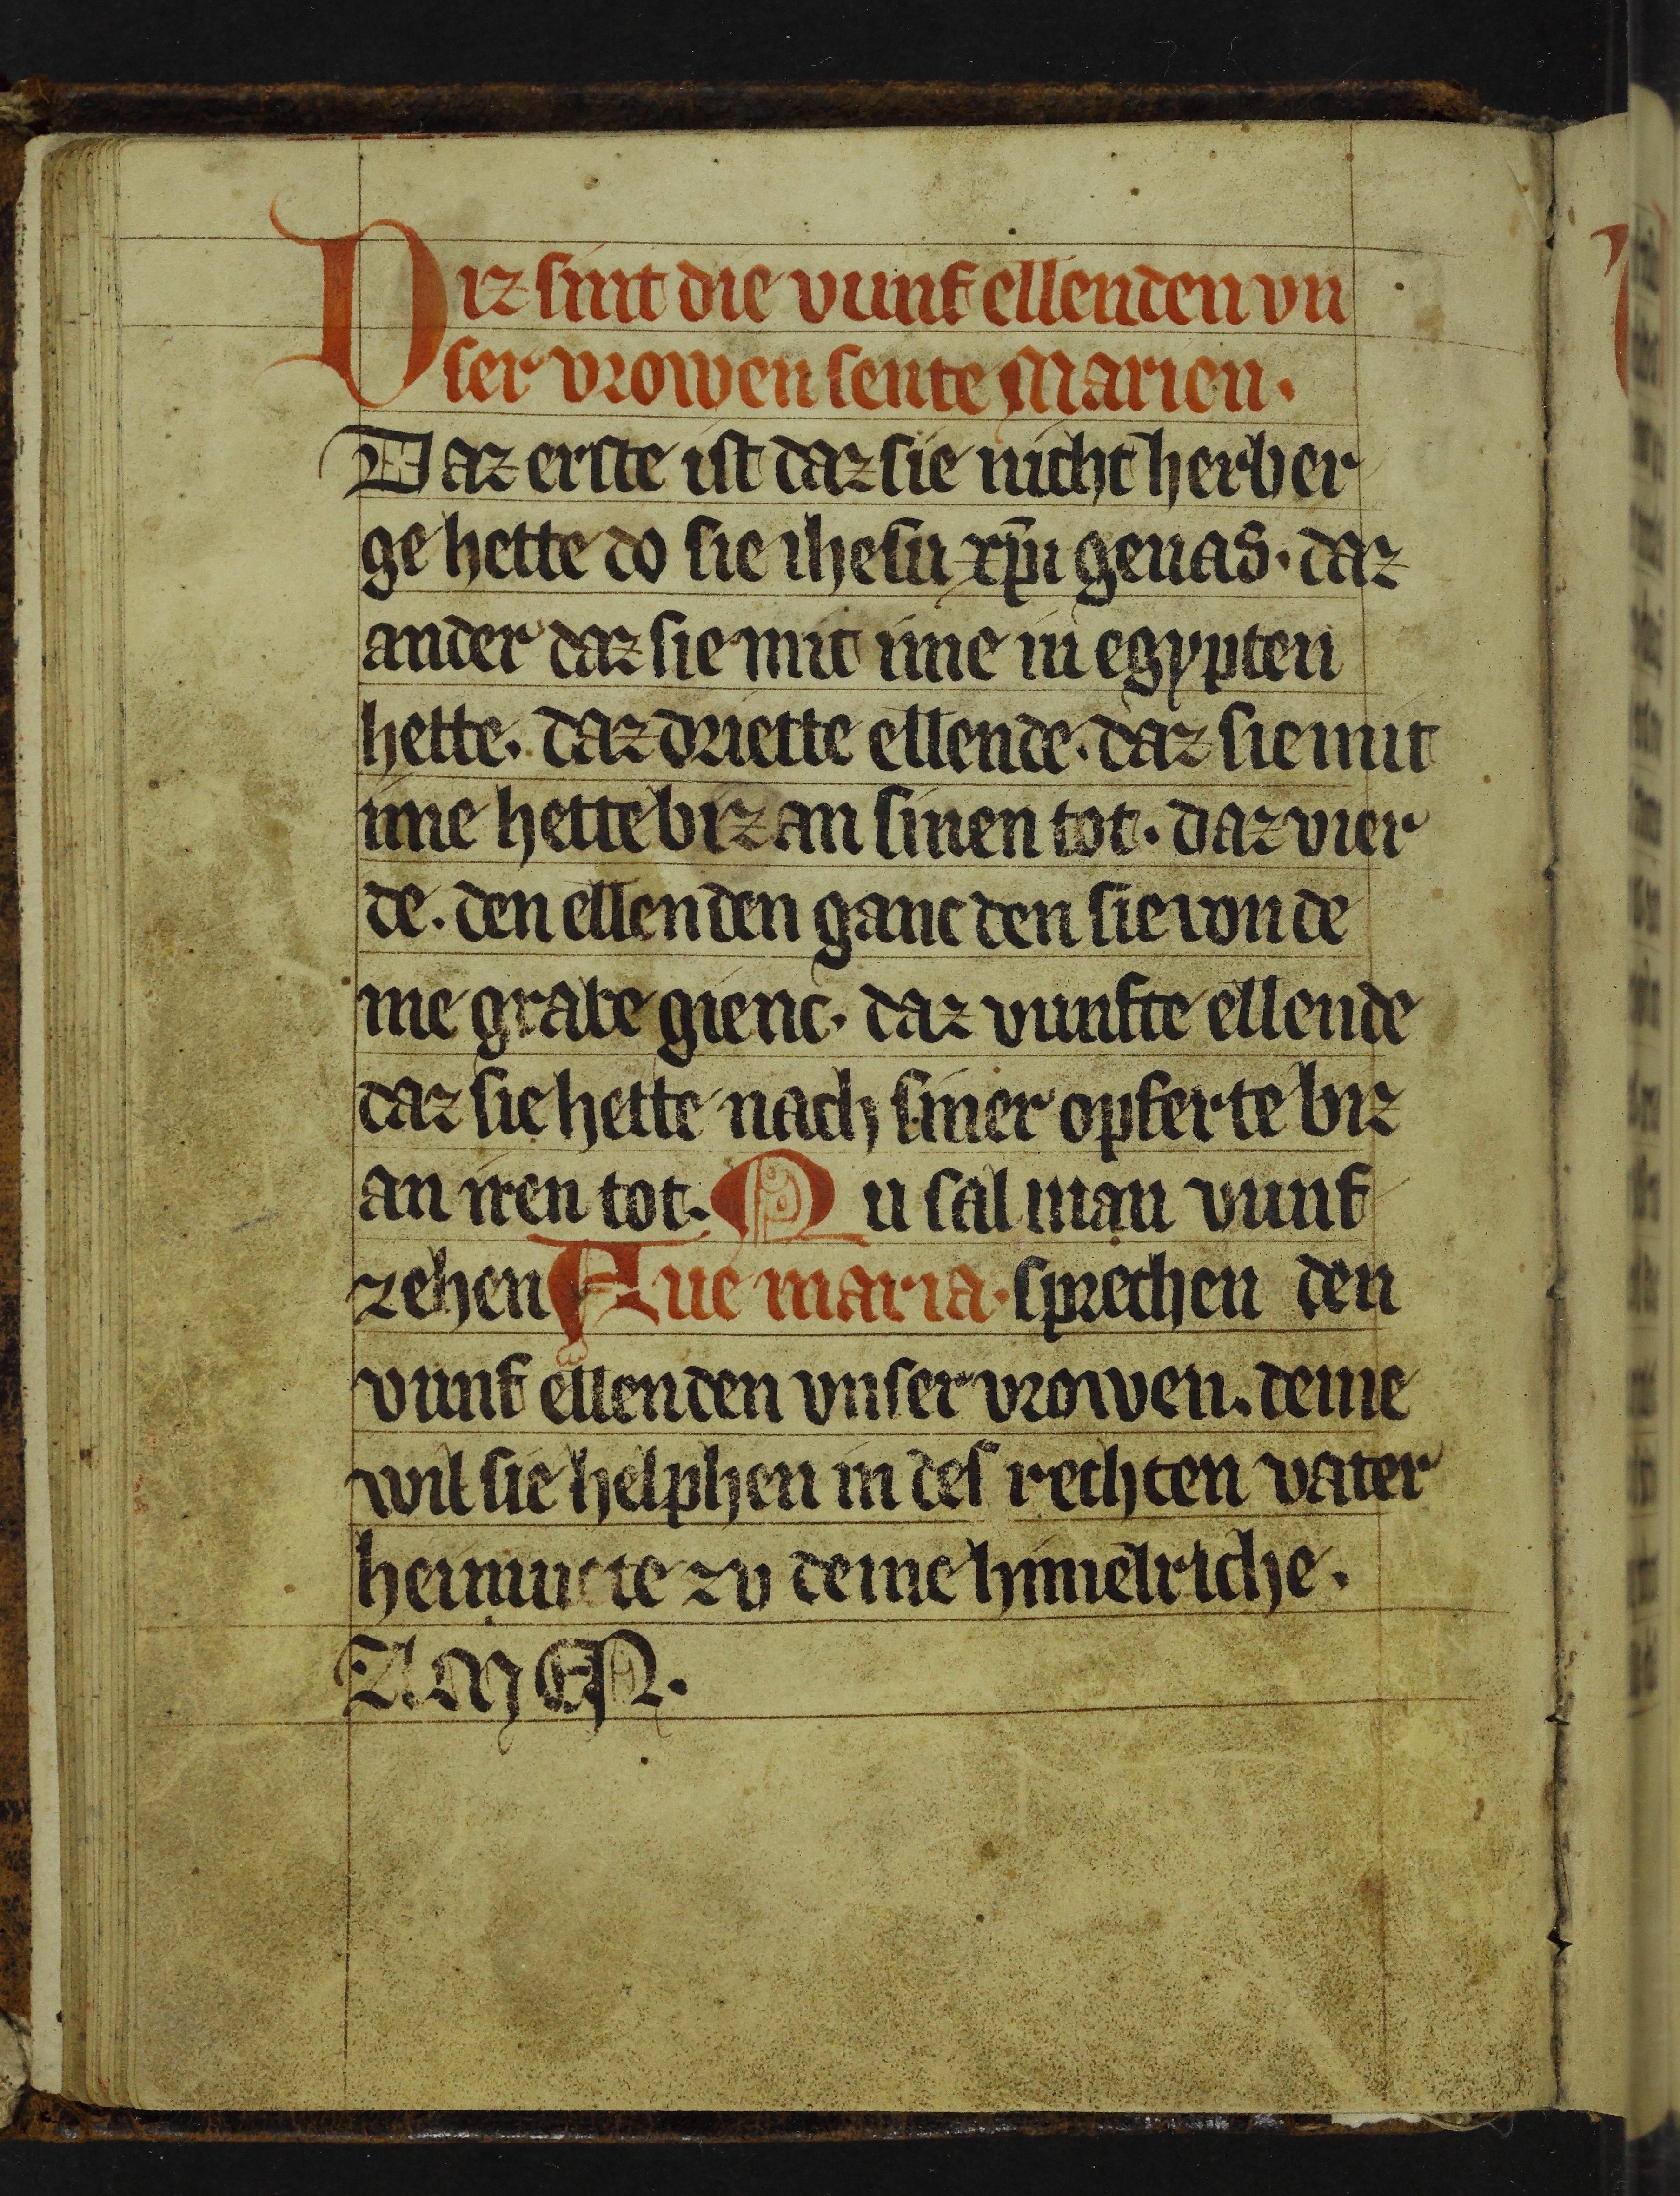 Diz sint die vunf ellenden vn
ser vrowen sente Marien.
Daz erste ist daz sie nicht herber
ge hette do sie ihesu xp̄i genas. daz
ander daz sie mit ime in egypten
hette. daz driette ellende. daz sie mit
ime hette biz an sinen tot. daz vier
de. den ellenden ganc den sie von de
me grabe gienc. daz vunfte ellende
daz sie hette nach siner opferte biz
an iren tot. Nu sal man vunf
zehen Aue maria. sprechen den
vunf ellenden vnser vrowen. deme
wil sie helphen in des rechten vater
heimucte zv deme himelriche.
AMEN.